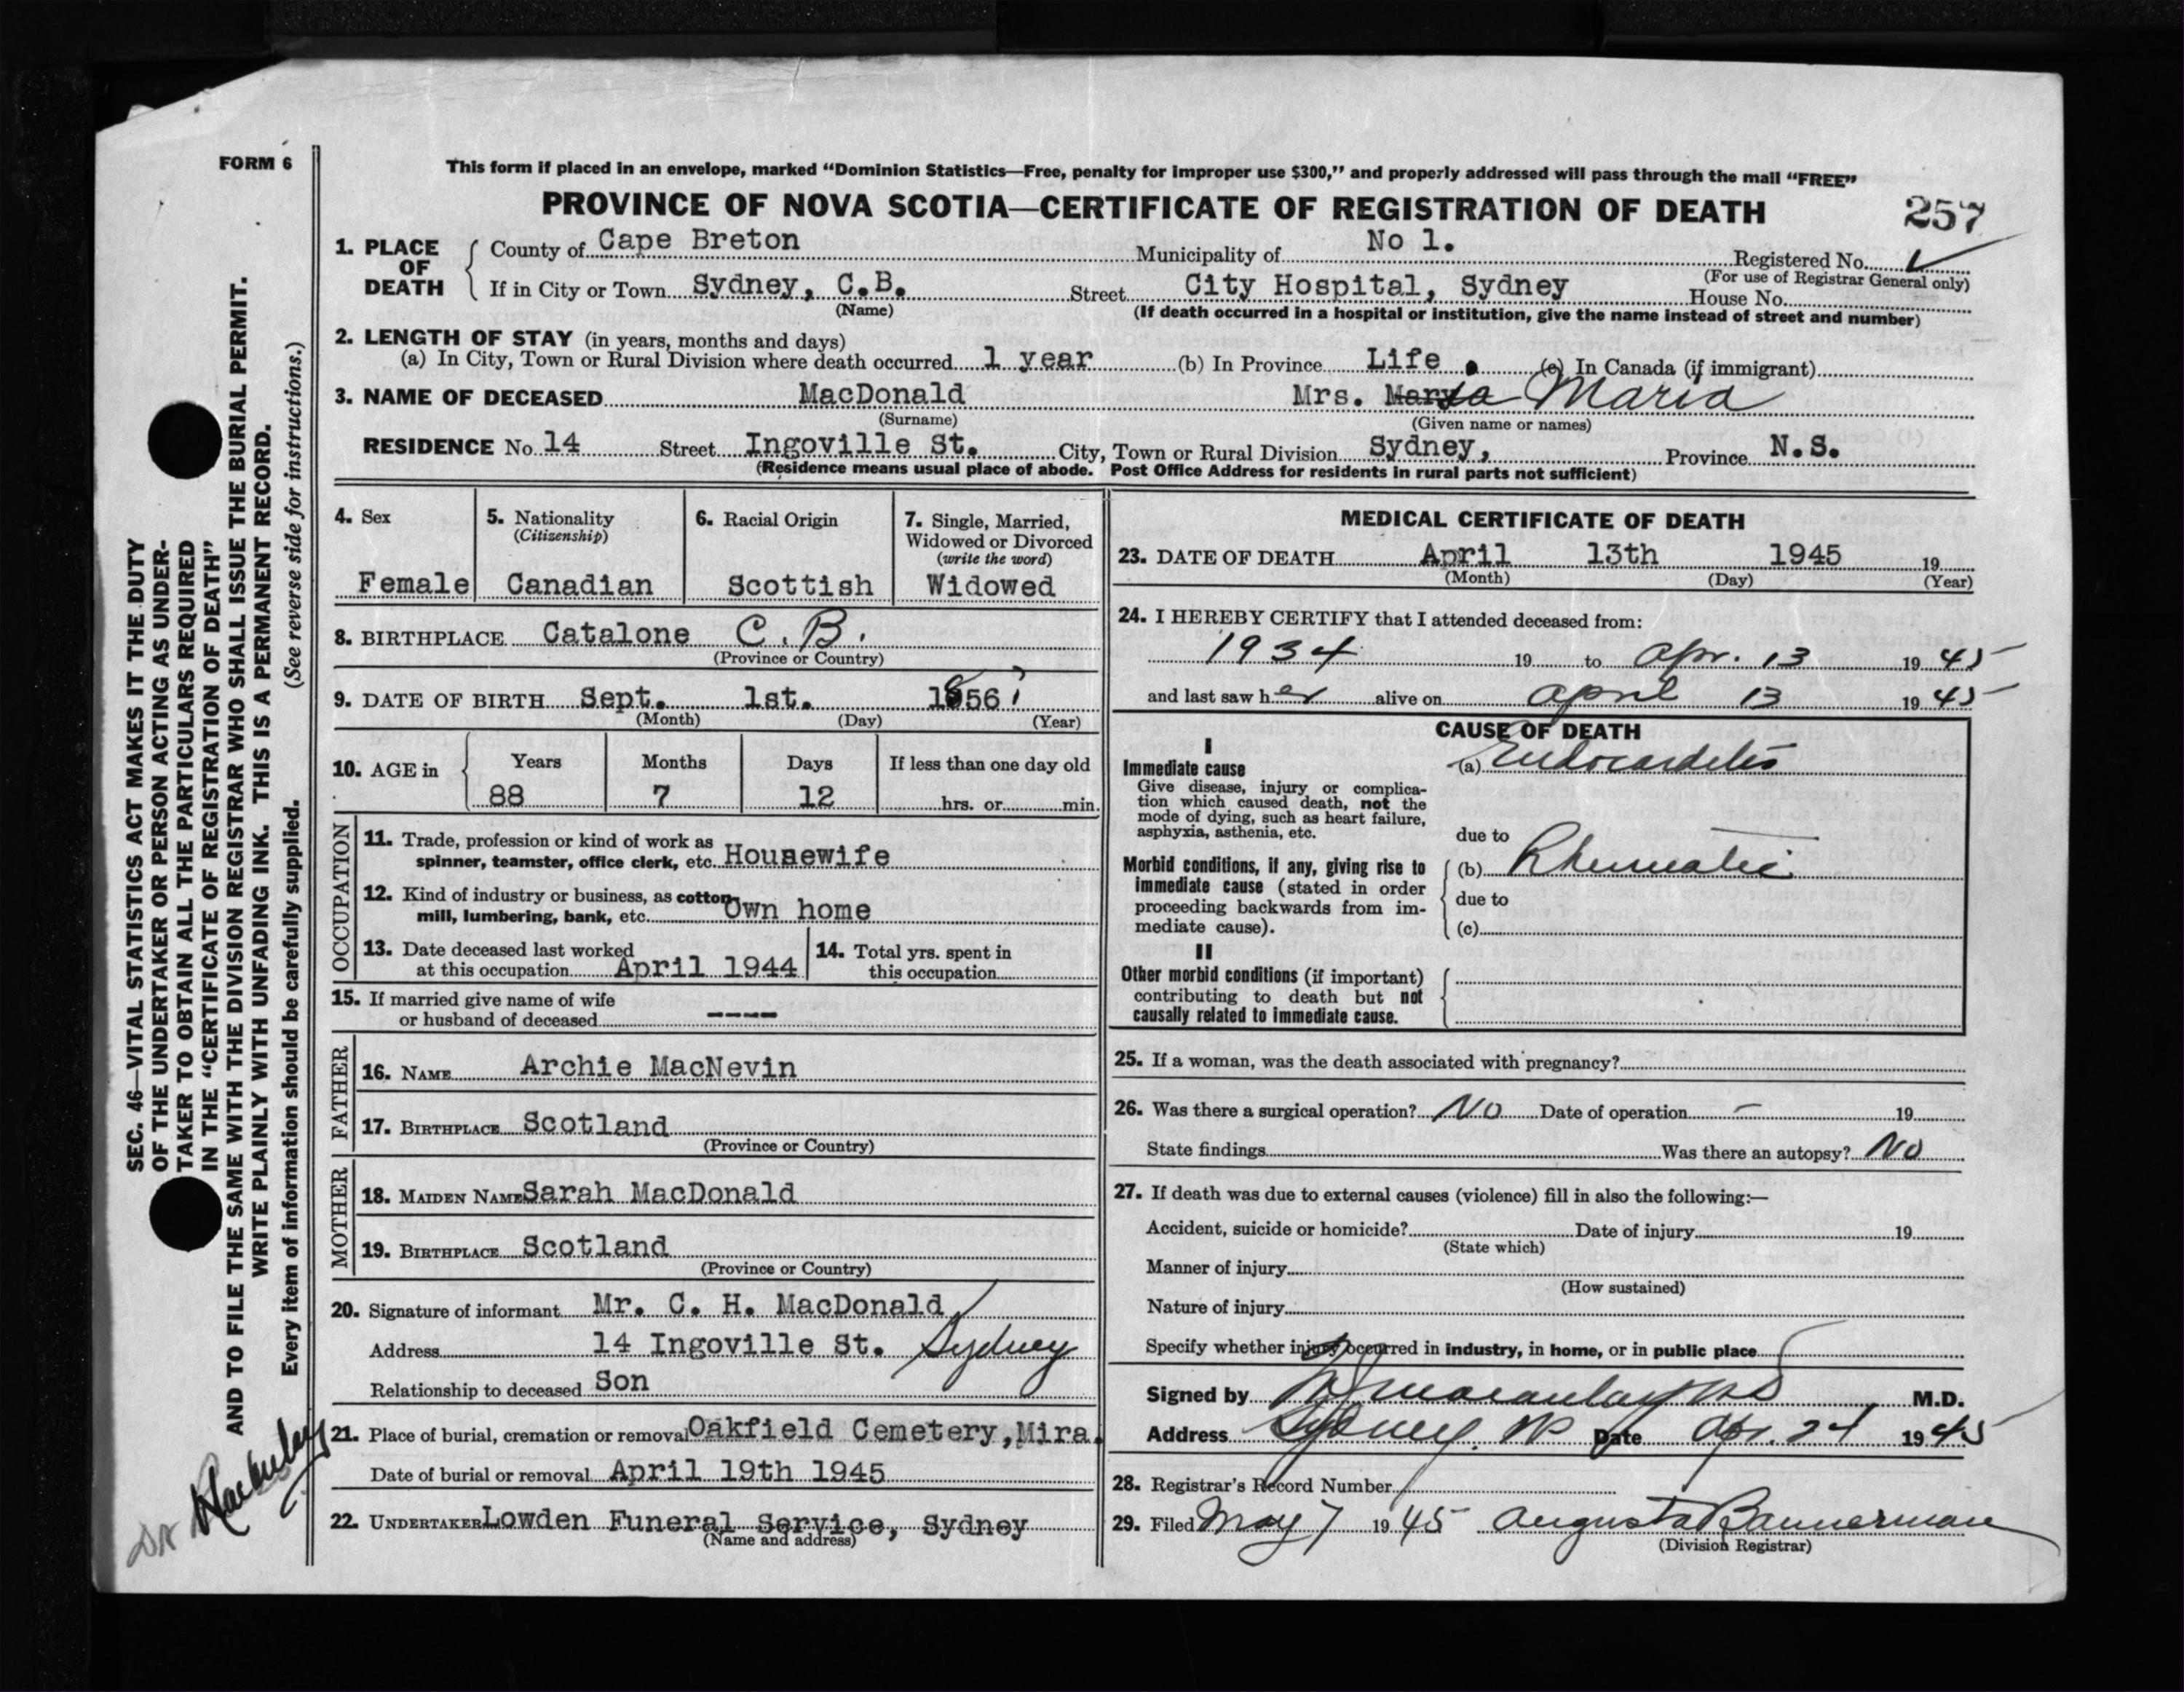 FORM 6
This form if placed in an envelope, marked "Dominion Statistics—Free, penalty for improper use $300," and properly addressed will pass through the mail "FREE"
PROVINCE OF NOVA SCOTIA—CERTIFICATE OF REGISTRATION OF DEATH
257
1. PLACE OF DEATH County of Cape Breton Municipality of No 1. Registered No.
(For use of Registrar General only)
If in City or Town Sydney, C.B. Street City Hospital, Sydney House No.
(Name) (If death occurred in a hospital or institution, give the name instead of street and number)
2. LENGTH OF STAY (in years, months and days)
(a) In City, Town or Rural Division where death occurred 1 year (b) In Province Life. (c) In Canada (if immigrant)
3. NAME OF DECEASED MacDonald Mrs. Maria
(Surname) (Given name or names)
RESIDENCE No. 14 Street Ingoville St. City, Town or Rural Division Sydney, Province N.S.
(Residence means usual place of abode. Post Office Address for residents in rural parts not sufficient)
4. Sex
Female
5. Nationality
(Citizenship)
Canadian
6. Racial Origin
Scottish
7. Single, Married,
Widowed or Divorced
(write the word)
Widowed
8. BIRTHPLACE Catalone C.B.
(Province or Country)
9. DATE OF BIRTH Sept. 1st. 1856
(Month) (Day) (Year)
10. AGE in Years Months Days If less than one day old
88 7 12 hrs. or min.
OCCUPATION
11. Trade, profession or kind of work as
spinner, teamster, office clerk, etc. Housewife
12. Kind of industry or business, as cotton
mill, lumbering, bank, etc. Own home
13. Date deceased last worked
at this occupation April 1944
14. Total yrs. spent in
this occupation
15. If married give name of wife
or husband of deceased ----
FATHER
16. NAME Archie MacNevin
17. BIRTHPLACE Scotland
(Province or Country)
MOTHER
18. MAIDEN NAME Sarah MacDonald
19. BIRTHPLACE Scotland
(Province or Country)
20. Signature of informant Mr. C. H. MacDonald
Address 14 Ingoville St. Sydney
Relationship to deceased Son
21. Place of burial, cremation or removal Oakfield Cemetery, Mira.
Date of burial or removal April 19th 1945
22. UNDERTAKER Lowden Funeral Service, Sydney
(Name and address)
MEDICAL CERTIFICATE OF DEATH
23. DATE OF DEATH April 13th 1945 19
(Month) (Day) (Year)
24. I HEREBY CERTIFY that I attended deceased from:
1934 19 to Apr. 13 19 45
and last saw her alive on April 13 19 45
CAUSE OF DEATH
I
Immediate cause (a) Endocarditis
Give disease, injury or complica-
tion which caused death, not the
mode of dying, such as heart failure,
asphyxia, asthenia, etc.
due to
Morbid conditions, if any, giving rise to
immediate cause (stated in order
proceeding backwards from im-
mediate cause).
(b) Rheumatic
due to
(c)
II
Other morbid conditions (if important)
contributing to death but not
causally related to immediate cause.
25. If a woman, was the death associated with pregnancy?
26. Was there a surgical operation? No Date of operation - 19
State findings Was there an autopsy? No
27. If death was due to external causes (violence) fill in also the following:—
Accident, suicide or homicide? Date of injury 19
(State which)
Manner of injury
(How sustained)
Nature of injury
Specify whether injury occurred in industry, in home, or in public place
Signed by Macaulay M.D.
Address Sydney. Date Apr. 24 19 45
28. Registrar's Record Number
29. Filed May 7 19 45 Augusta Bannerman
(Division Registrar)
SEC. 46—VITAL STATISTICS ACT MAKES IT THE DUTY
OF THE UNDERTAKER OR PERSON ACTING AS UNDER-
TAKER TO OBTAIN ALL THE PARTICULARS REQUIRED
IN THE "CERTIFICATE OF REGISTRATION OF DEATH"
AND TO FILE THE SAME WITH THE DIVISION REGISTRAR WHO SHALL ISSUE THE BURIAL PERMIT.
WRITE PLAINLY WITH UNFADING INK. THIS IS A PERMANENT RECORD.
Every item of information should be carefully supplied. (See reverse side for instructions.)
Dr